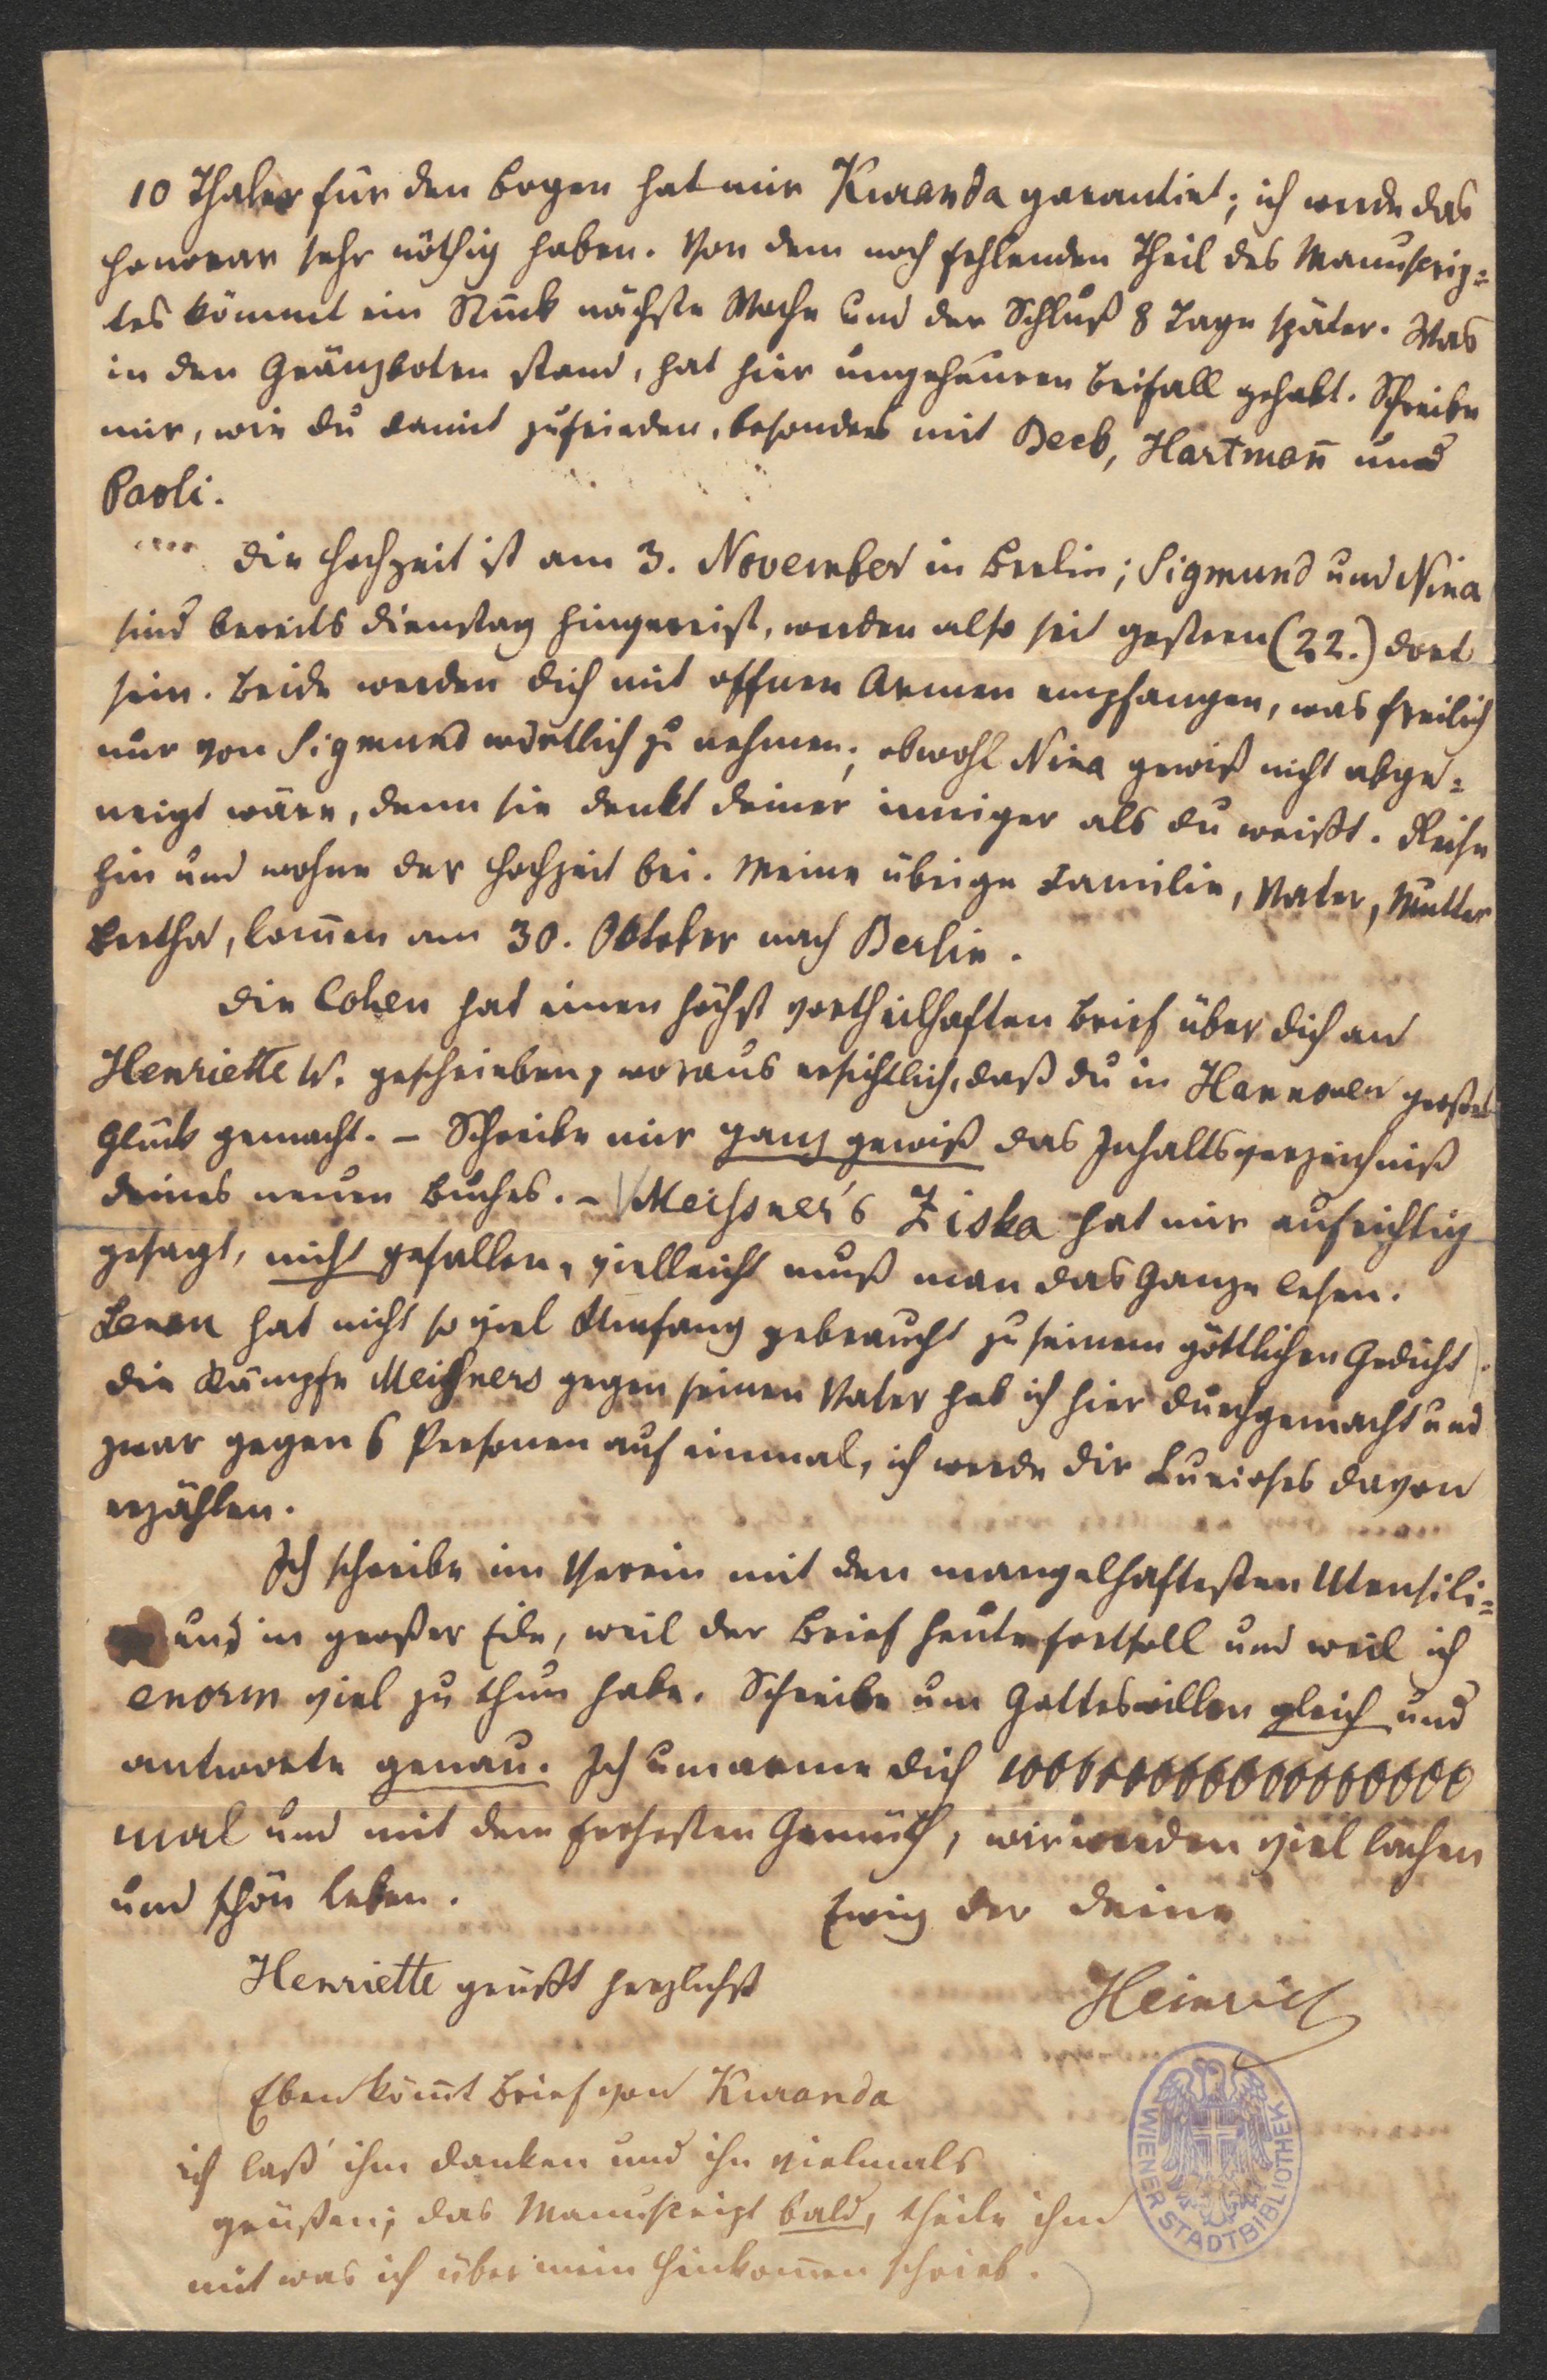 10 Thaler für den Bogen hat mir Kuranda garantirt; ich werde das
Honorar sehr nöthig haben. Von dem noch fehlenden Theil des Manuscrip=
tes kömmt ein Stück nächste Woche und der Schluß 8 Tage später. Was
in den Gränzboten stand, hat hier ungeheuren Beifall gehabt. Schreibe
mir, wie du damit zufrieden, besonders mit Beck, Hartmañ und
Paoli.
Die Hochzeit ist am 3. November in Berlin; Sigmund und Nina
sind bereits Dienstag hingereist, werden also seit gestern (22.) dort
sein. Beide werden dich mit offnen Armen empfangen, was freilich
nur von Sigmund wörtlich zu nehmen; obwohl Nina gewiß nicht abge=
neigt wäre, denn sie denkt deiner inniger als du weißt. Reise
hin und wohne der Hochzeit bei. Meine übrige Familie, Vater, Mutter
Bertha, kom̄en am 30. Oktober nach Berlin.
Die Cohen hat einen höchst vortheilhaften Brief über dich an
Henriette W. geschrieben, woraus ersichtlich, daß du in Hannover großes
Glück gemacht. – Schreibe mir ganz gewiß das Inhaltsverzeichniß
deines neuen Buches. – Meissner's Ziska hat mir aufrichtig
gesagt, nicht gefallen, vielleicht muß man das Ganze lesen.
Lenau hat nicht so viel Umfang gebraucht zu seinem göttlichen Gedicht.
Die Kämpfe Meißners gegen seinen Vater hab ich hier durchgemacht und
zwar gegen 6 Personen auf einmal, ich werde dir Kurioses davon
erzählen.
Ich schreibe im Verein mit den mangelhaftesten Utensili=
und in großer Eile, weil der Brief heute fort soll und weil ich
enorm viel zu thun habe. Schreibe um Gotteswillen gleich und
antworte genau. Ich umarme dich
mal und mit dem frohesten Gemüth, wir werden viel lachen
und schön leben.
Ewig der Deine
Henriette grüßt herzlichst
Heinrich
Eben köm̄t Brief von Kuranda
ich laß' ihm danken und ihn vielmals
grüßen; das Manuscript bald, theile ihm
mit was ich über mein Hinkom̄en schrieb.
WIENER STADTBIBLIOTHEK